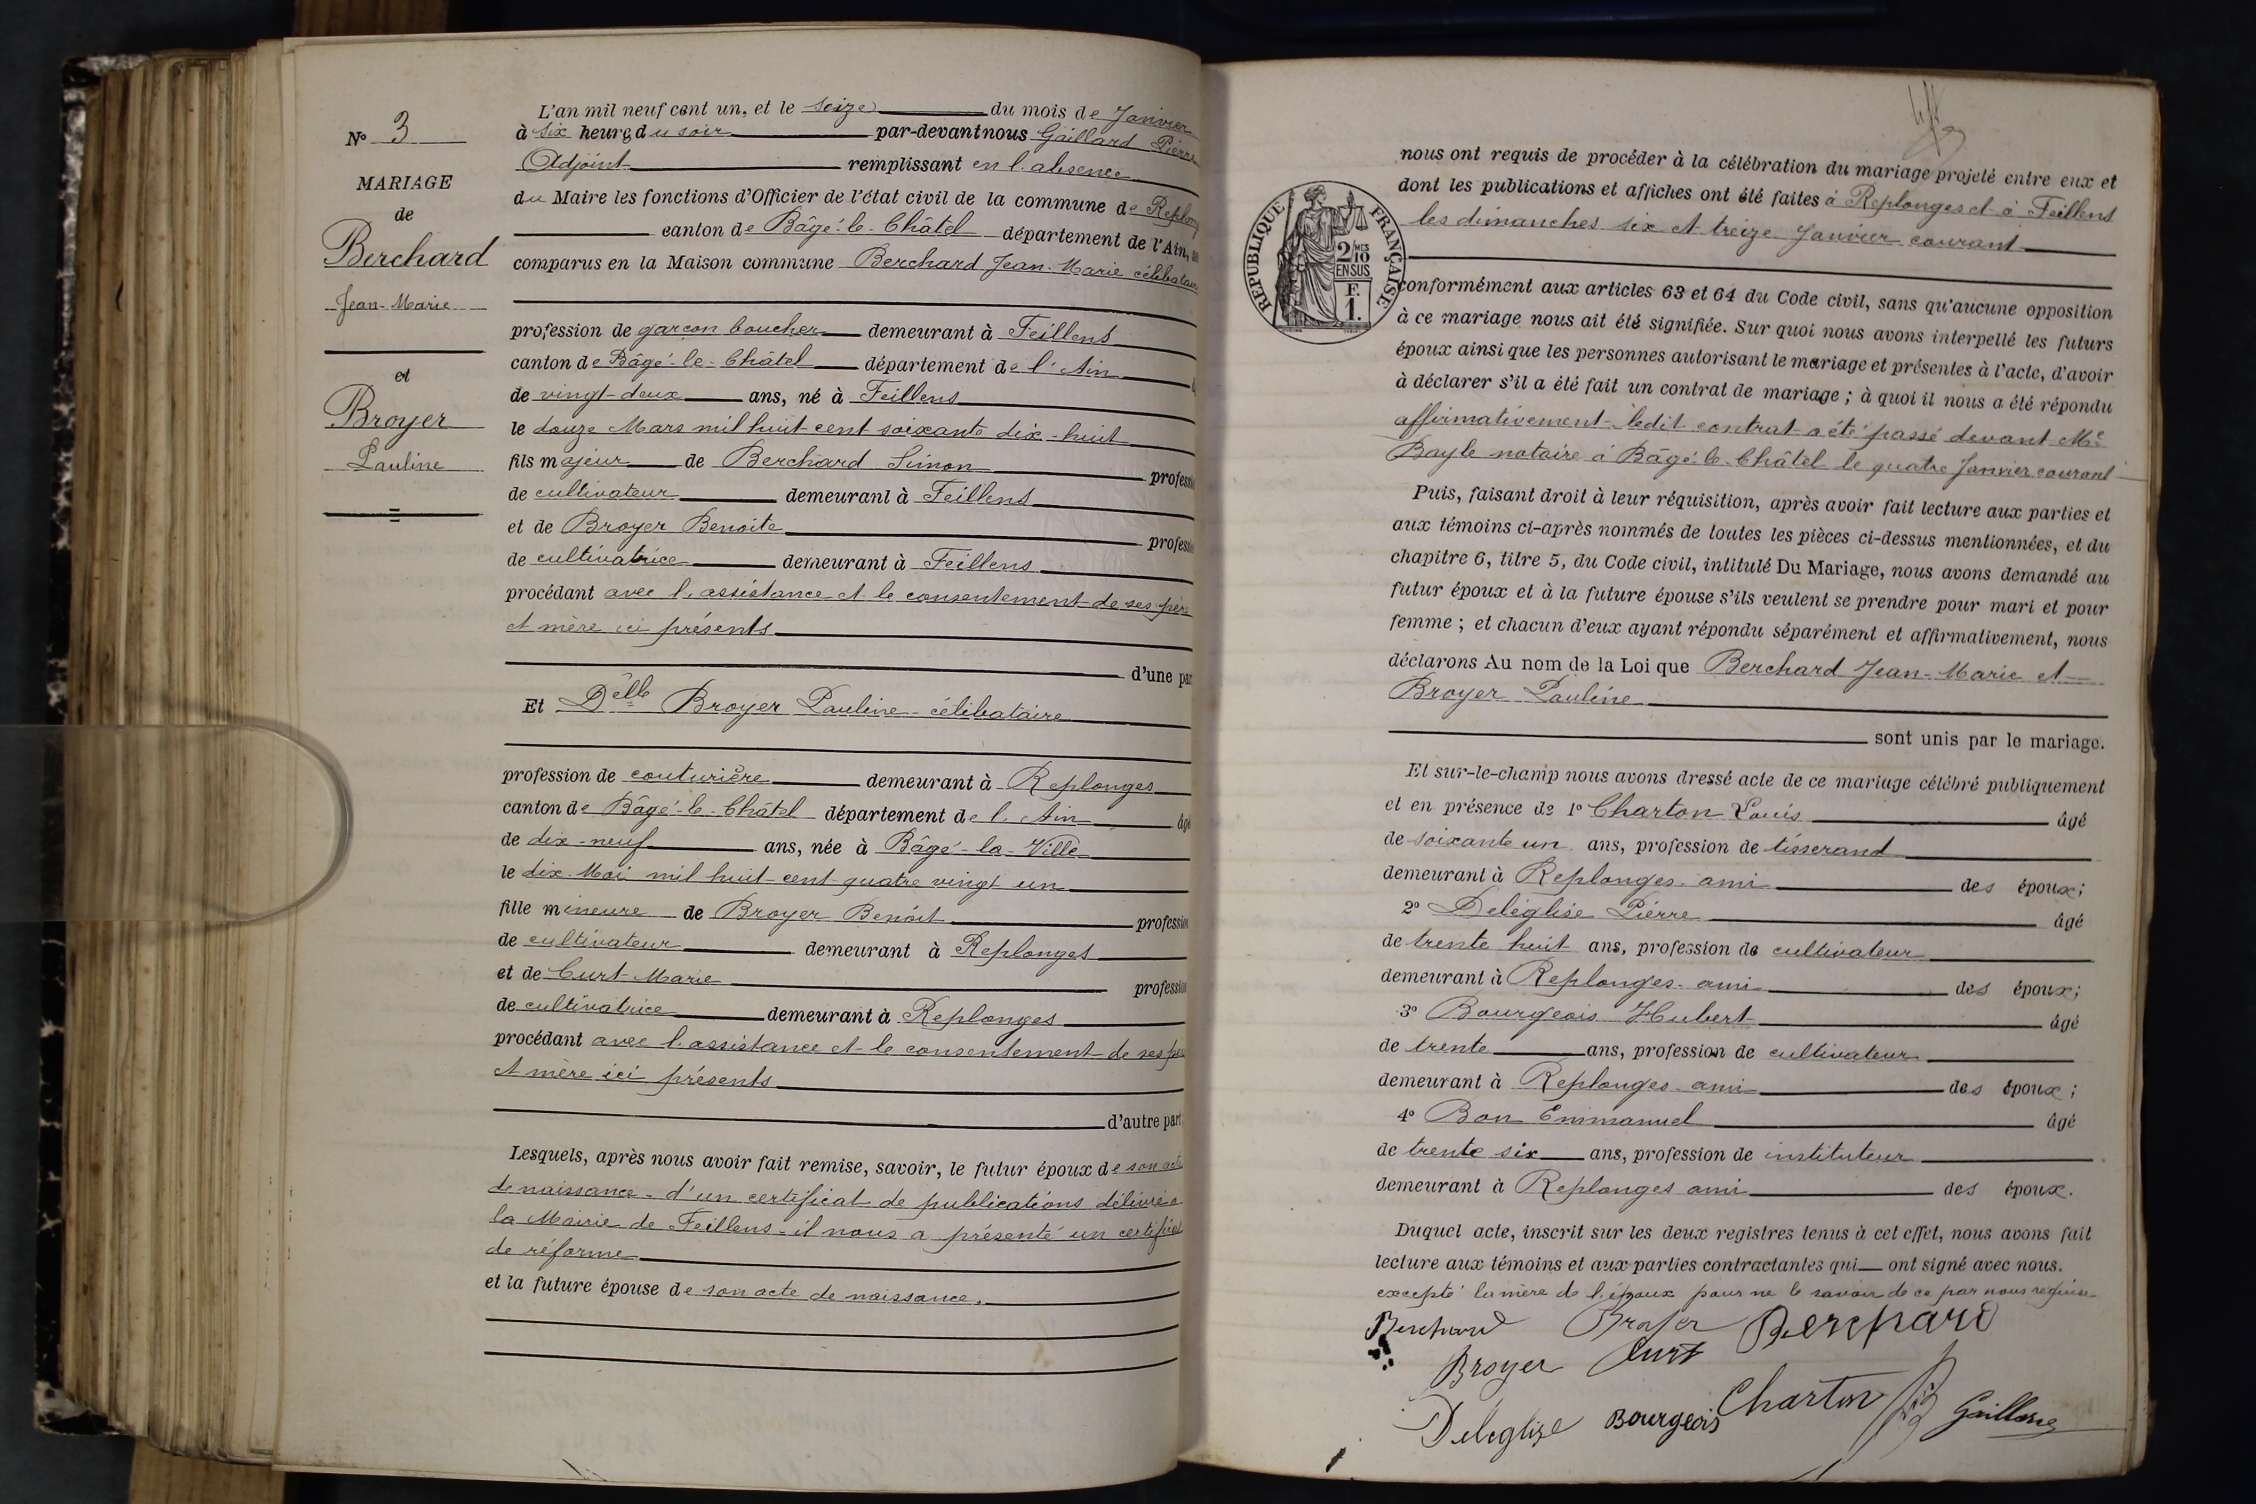 N° 3
MARIAGE
de
Berchard
Jean-Marie
et
Broyer
Pauline
L'an mil neuf cent un, et le seize du mois de Janvier
à six heures du soir par-devant nous Gaillard Pierre
Adjoint remplissant en l'absence
du Maire les fonctions d'Officier de l'état civil de la commune de Replong
canton de Bâgé-le-Châtel département de l'Ain,
comparus en la Maison commune Berchard Jean-Marie célibataire
profession de garçon boucher demeurant à Feillens
canton de Bâgé-le-Châtel département de l'Ain
de vingt-deux ans, né à Feillens
le douze Mars mil huit cent soixante dix-huit
fils majeur de Berchard Simon professi
de cultivateur demeurant à Feillens
et de Broyer Benoite professi
de cultivatrice demeurant à Feillens
procédant avec l'assistance et le consentement de ses père
et mère ici présents
d'une par
Et Delle Broyer Pauline célibataire
profession de couturière demeurant à Replonges
canton de Bâgé-le-Châtel département de l'Ain âgé
de dix-neuf ans, née à Bâgé-la-Ville
le dix Mai mil huit cent quatre vingt un
fille mineure de Broyer Benoit profession
de cultivateur demeurant à Replonges
et de Curt Marie profession
de cultivatrice demeurant à Replonges
procédant avec l'assistance et le consentement de ses père
et mère ici présents
d'autre part
Lesquels, après nous avoir fait remise, savoir, le futur époux de son acte
de naissance - d'un certificat de publications délivré à
la Mairie de Feillens - il nous a présenté un certificat
de réforme
et la future épouse de son acte de naissance.
nous ont requis de procéder à la célébration du mariage projeté entre eux et
dont les publications et affiches ont été faites à Replonges et à Feillens
les dimanches six et treize Janvier courant
RÉPUBLIQUE FRANÇAISE
2/10 MES
EN SUS
F.
1.
conformément aux articles 63 et 64 du Code civil, sans qu'aucune opposition
à ce mariage nous ait été signifiée. Sur quoi nous avons interpellé les futurs
époux ainsi que les personnes autorisant le mariage et présentes à l'acte, d'avoir
à déclarer s'il a été fait un contrat de mariage ; à quoi il nous a été répondu
affirmativement - ledit contrat a été passé devant Me
Bayle notaire à Bâgé-le-Châtel le quatre Janvier courant
Puis, faisant droit à leur réquisition, après avoir fait lecture aux parties et
aux témoins ci-après nommés de toutes les pièces ci-dessus mentionnées, et du
chapitre 6, titre 5, du Code civil, intitulé Du Mariage, nous avons demandé au
futur époux et à la future épouse s'ils veulent se prendre pour mari et pour
femme ; et chacun d'eux ayant répondu séparément et affirmativement, nous
déclarons Au nom de la Loi que Berchard Jean-Marie et
Broyer Pauline
sont unis par le mariage.
Et sur-le-champ nous avons dressé acte de ce mariage célébré publiquement
et en présence de 1° Charton Louis âgé
de soixante un ans, profession de tisserand
demeurant à Replonges ami des époux ;
2° Deléglise Pierre âgé
de trente huit ans, profession de cultivateur
demeurant à Replonges ami des époux ;
3° Bourgeois Hubert âgé
de trente ans, profession de cultivateur
demeurant à Replonges ami des époux ;
4° Bon Emmanuel âgé
de trente six ans, profession de instituteur
demeurant à Replonges ami des époux.
Duquel acte, inscrit sur les deux registres tenus à cet effet, nous avons fait
lecture aux témoins et aux parties contractantes qui ont signé avec nous.
excepté la mère de l'époux pour ne le savoir de ce par nous requise
Berchard Broyer Berchard
Broyer Curt
Deleglise Bourgeois Charton Gaillard